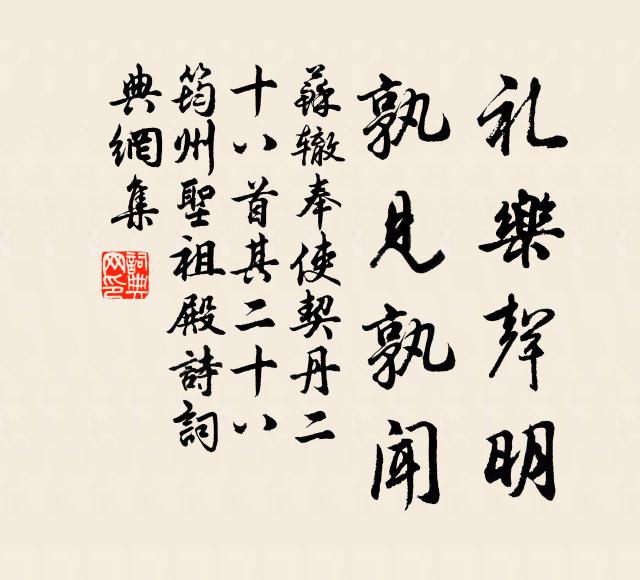 礼樂聲明
孰見孰闻
蘇辙奉使契丹二
十八首其二十八
筠州聖祖殿詩詞
典網集
詞典
网印